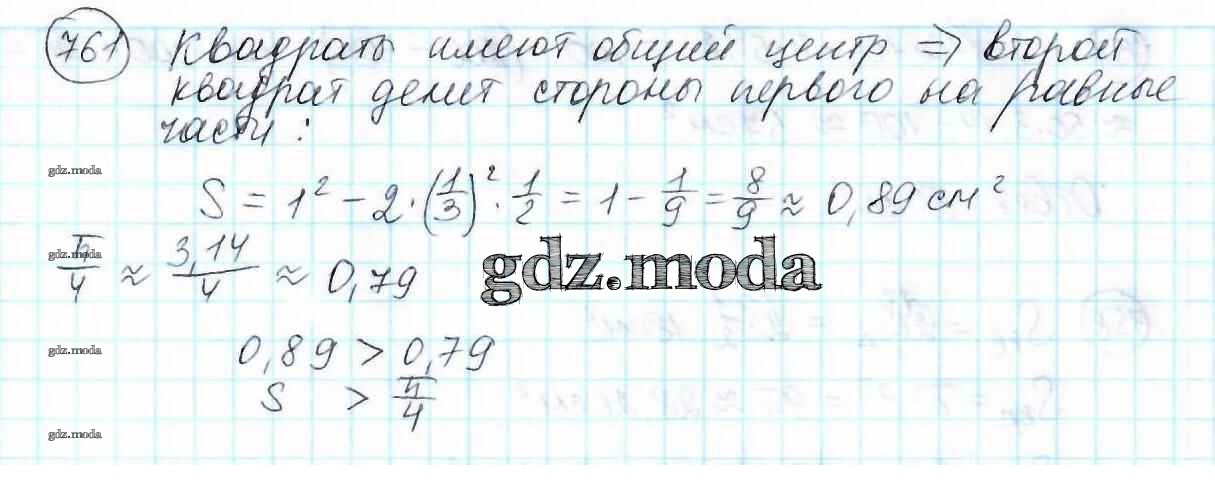 761 Квадраты имеют общий центр => второй
квадрат делит стороны первого на равные
части:
gdz.moda
S = 1² - 2·(1/3)²·1/2 = 1 - 1/9 = 8/9 ≈ 0,89 см²
gdz.moda
π/4 ≈ 3,14/4 ≈ 0,79
gdz.moda
gdz.moda
0,89 > 0,79
S > π/4
gdz.moda